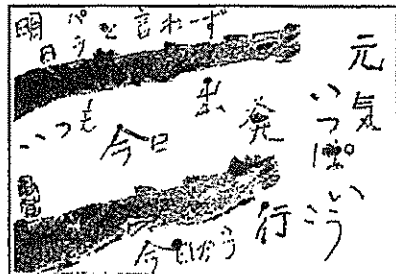 明日からと言わず
いつも今日出発
今
元気いっぱい
行こう